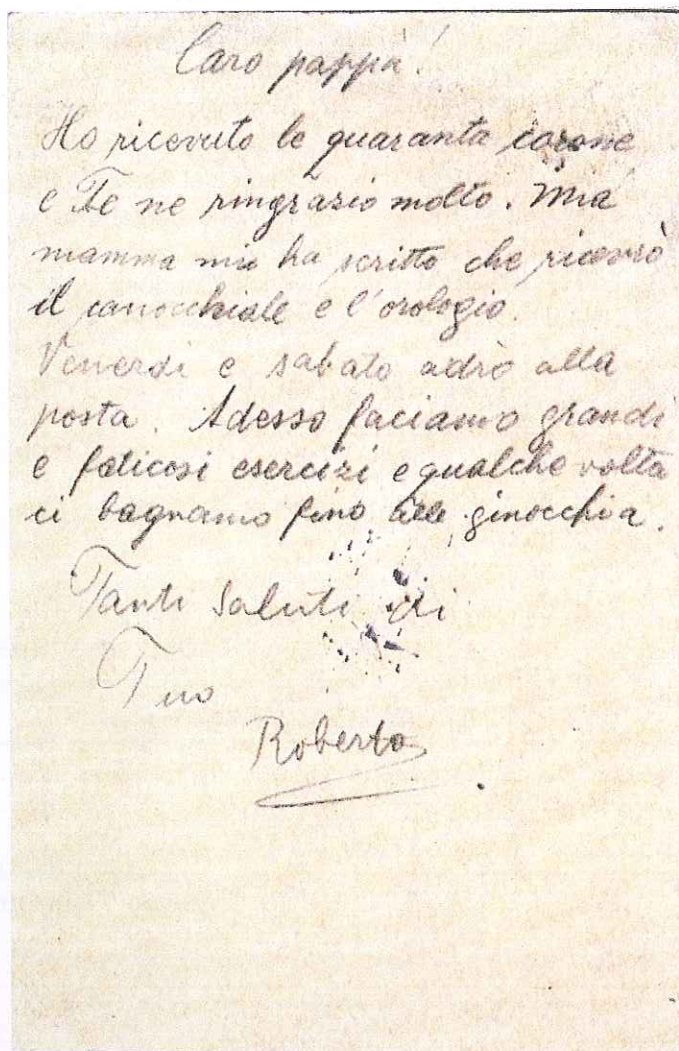 Caro pappa!
Ho ricevuto le quaranta corone
e Te ne ringrazio molto. Mia
mamma mi ha scritto che ricevrò
il canocchiale e l'orologio.
Venerdi e sabato adrò alla
posta. Adesso faciamo grandi
e faticosi esercizi e qualche volta
ci bagnamo fino alle ginocchia.
Tanti Saluti di
Tuo
Roberto